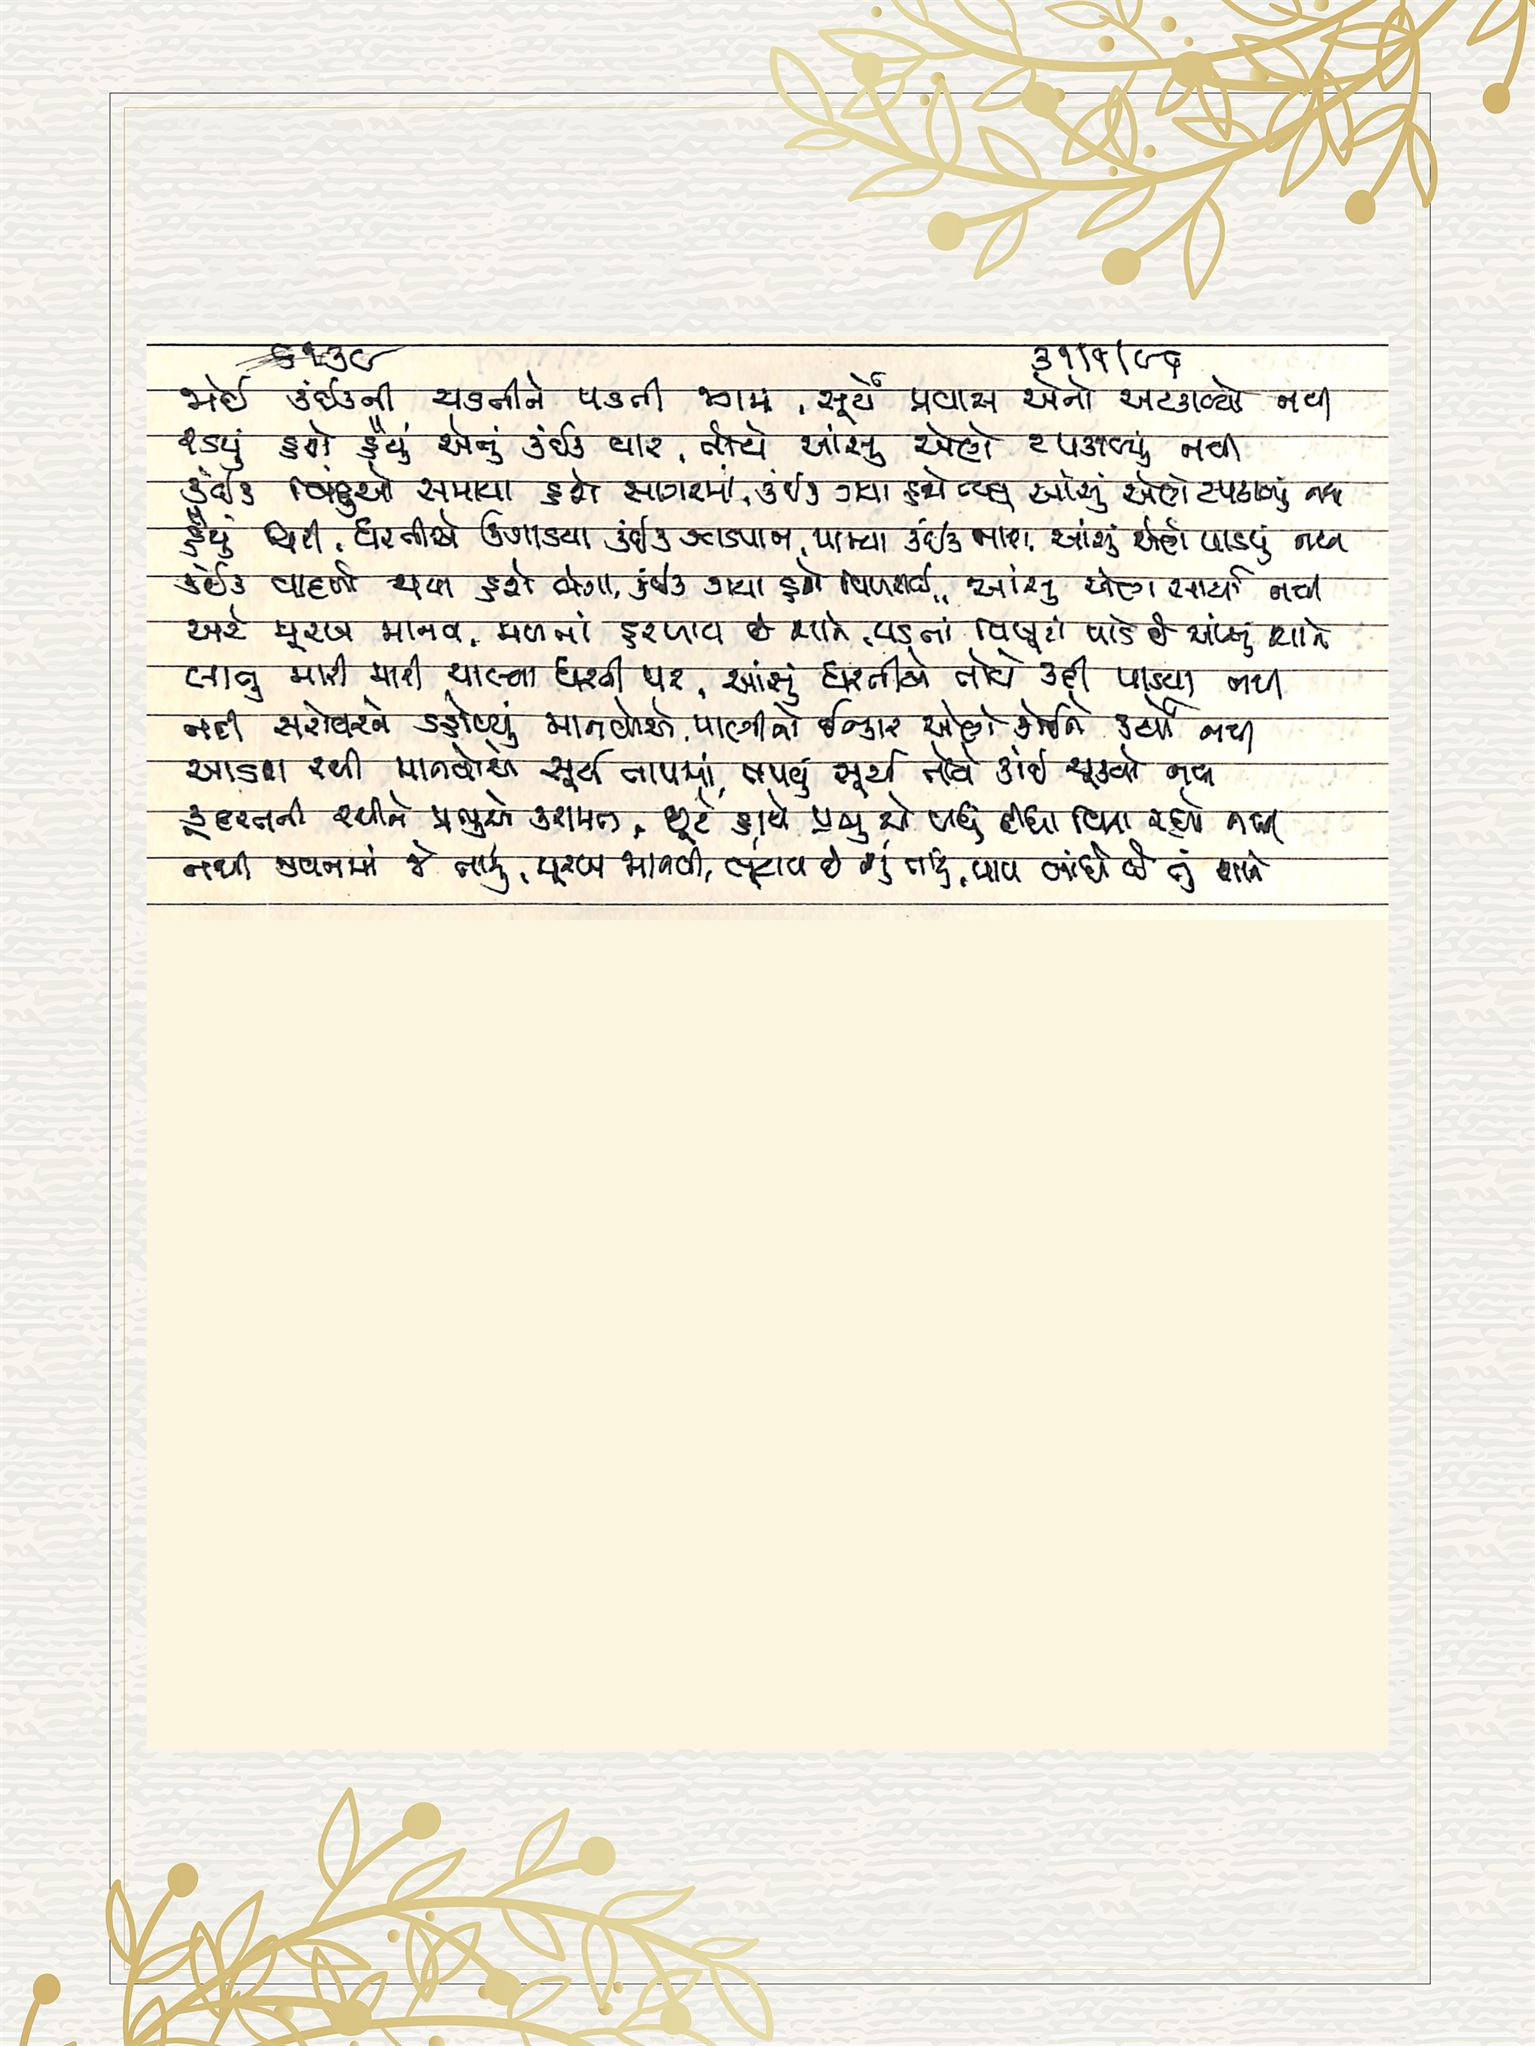 ૬૧૩૯ ૩૧/૧/૯૬
જોઈ કંઈકની ચડતીને પડતી જગમાં, સૂર્યે પ્રવાસ એનો અટકાવ્યો નથી
રડયું હશે હૈયું એનું કંઈક વાર, તોયે આંસુ એણે ટપકાવ્યું નથી
કંઈક બિંદુઓ સમાયા હશે સાગરમાં, કંઈક ગયા હશે આંસું એણે ટપકાવ્યું નથી
હૈયું ચિરી, ધરતીએ ઉગાડયા કંઈક ઝાડપાન, પામ્યા કંઈક નાશ, આંસું એણે પાડયું નથી
કંઈક વાદળો થયા હશે ભેગા, કંઈક ગયા હશે વિખરાઈ, આંસુ એણે સાર્યા નથી
અરે મૂરખ માનવ, મળતાં હરખાય છે શાને, પડતાં વિખૂટાં પાડે છે આંસું શાને
લાતુ મારી મારી ચાલ્યા ધરતી પર, આંસું ધરતીએ તોયે કદી પાડયા નથી
નદી સરોવરને ડહોળ્યું માનવોએ, પાણીનો ઈન્કાર એણે કોઈને કર્યો નથી
આડશ રચી માનવોએ સૂર્ય તાપમાં, તપવું સૂર્ય તોયે કાંઈ ચૂક્યો નથી
કુદરતની રચીને પ્રભુએ કરામત, છૂટે હાથે પ્રભુ એ બધું દીધા વિના રહ્યો નથી
નથી જીવનમાં જે તારું, મૂરખ માનવી, લૂંટાય છે શું તારું, પાપ બાંધે છે તું શાને